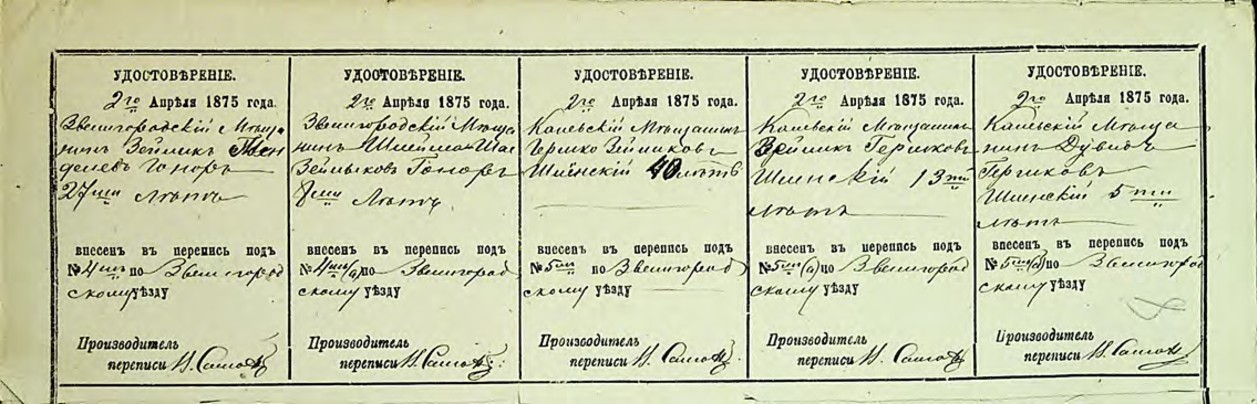 УДОСТОВѢРЕНІЕ.
2го Апрѣля 1875 года.
Звенигородскій Мѣща
нинъ Зейликъ Мен
делевъ Гоноръ
27ми Лѣтъ
внесенъ въ перепись подъ
№ 4мъ по Звенигород
скому уѣзду
Производитель
переписи
УДОСТОВѢРЕНІЕ.
2го Апрѣля 1875 года.
Звенигородскій Мѣща
нинъ
Зейликовъ Гоноръ
8ми Лѣтъ
внесенъ въ перепись подъ
№ 4мъ(а) по Звенигород
скому уѣзду
Производитель
переписи
УДОСТОВѢРЕНІЕ.
2го Апрѣля 1875 года.
Каневскій Мѣщанинъ
Гершко Зейликовъ
40 лѣтъ
внесенъ въ перепись подъ
№ 5мъ по Звенигород
скому уѣзду
Производитель
переписи
УДОСТОВѢРЕНІЕ.
2го Апрѣля 1875 года.
Каневскій Мѣщанинъ
Зейликъ Гершковъ
13ти
лѣтъ
внесенъ въ перепись подъ
№ 5мъ(а) по Звенигород
скому уѣзду
Производитель
переписи
УДОСТОВѢРЕНІЕ.
2го Апрѣля 1875 года.
Каневскій Мѣща
нинъ Дувидъ
Гершковъ
5ти
лѣтъ
внесенъ въ перепись подъ
№ 5мъ по Звенигород
скому уѣзду
Производитель
переписи